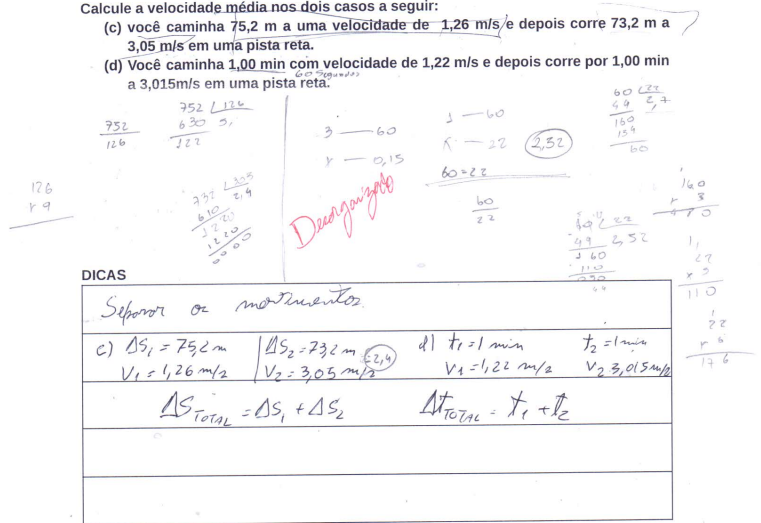 Calcule a velocidade média nos dois casos a seguir:
(c) você caminha 75,2 m a uma velocidade de 1,26 m/s e depois corre 73,2 m a
3,05 m/s em uma pista reta.
(d) Você caminha 1,00 min com velocidade de 1,22 m/s e depois corre por 1,00 min
60 segundos
a 3,015m/s em uma pista reta.
752
126
752 126
630 5,
122
3 — 60
x — 0,15
1 — 60
x — 22
2,32
60=22
60
22
60 22
44 2,7
160
154
60
126
x 9
732 305
610 2,4
1220
1220
0000
Desorganizado
160
x 3
480
22
x 5
110
22
x 8
176
DICAS
Separar os movimentos
c) ΔS1 = 75,2 m ΔS2 = 73,2 m =2,4 d) t1 = 1 min t2 = 1 min
V1 = 1,26 m/s V2 = 3,05 m/s V1 = 1,22 m/s V2 3,015 m/s
ΔS TOTAL = ΔS1 + ΔS2 Δt TOTAL = t1 + t2